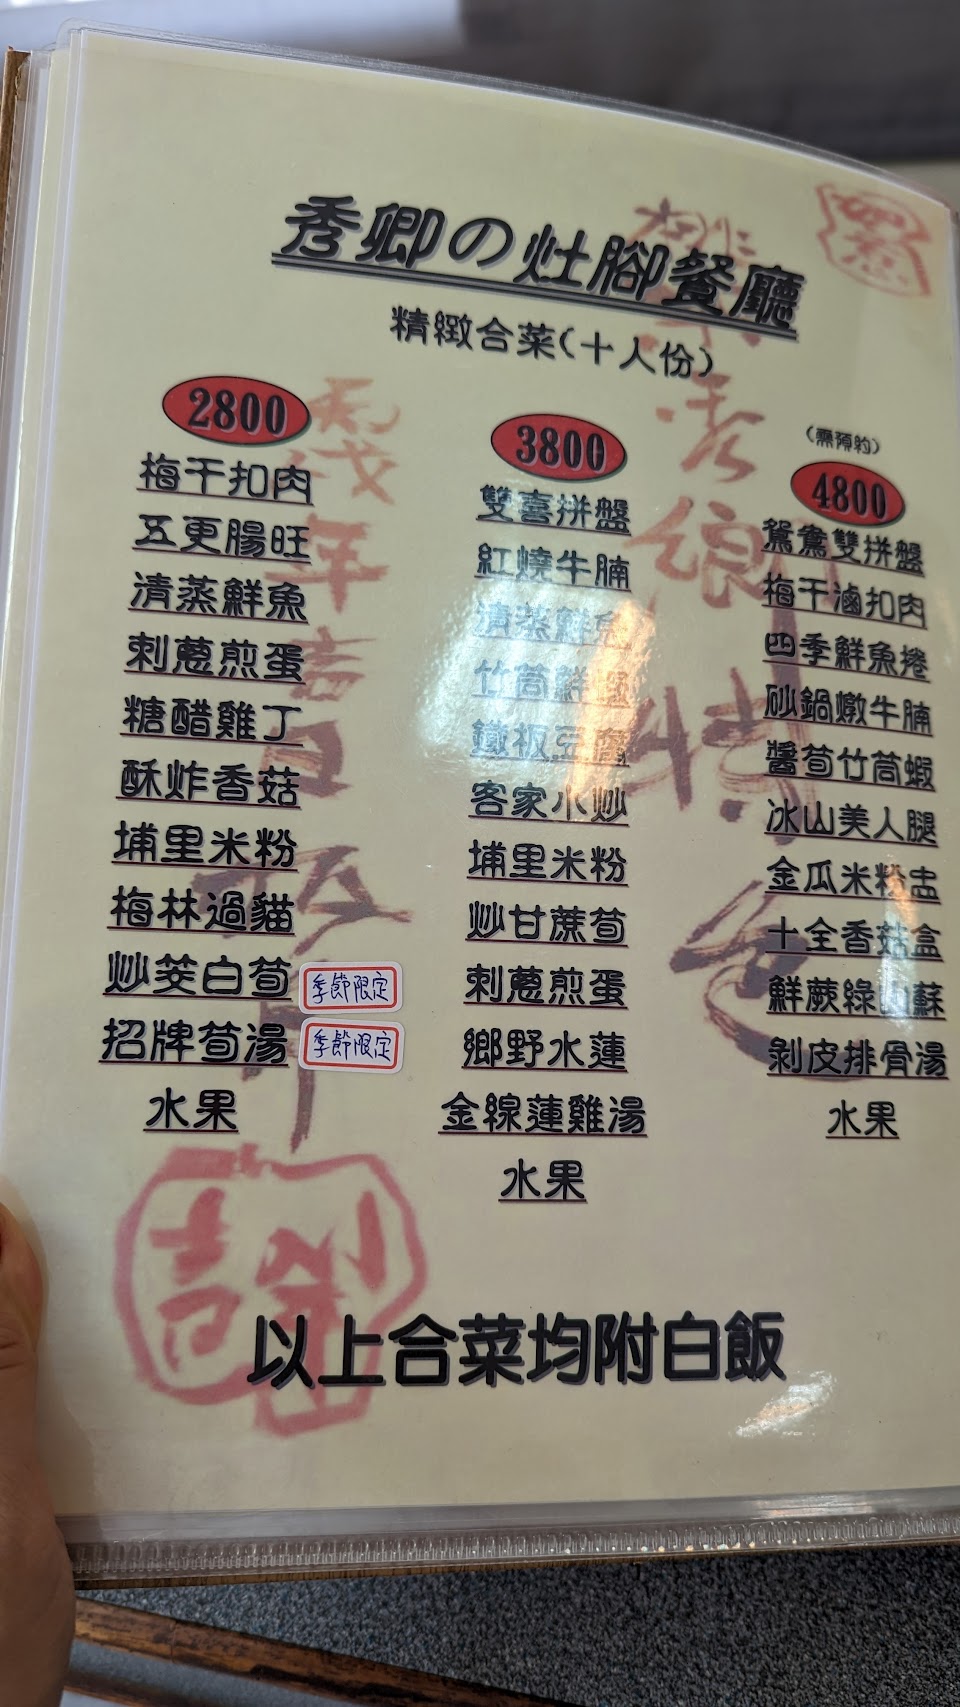 秀卿の灶腳餐廳
精緻合菜(十人份)
2800
梅干扣肉
五更腸旺
清蒸鮮魚
刺蔥煎蛋
糖醋雞丁
酥炸香菇
埔里米粉
梅林過貓
炒茭白筍 季節限定
招牌筍湯 季節限定
水果
3800
雙喜拼盤
紅燒牛腩
清蒸鮮魚
竹筒鮮蝦
鐵板豆腐
客家小炒
埔里米粉
炒甘蔗筍
刺蔥煎蛋
鄉野水蓮
金線蓮雞湯
水果
(需預約)
4800
鴛鴦雙拼盤
梅干滷扣肉
四季鮮魚捲
砂鍋燉牛腩
醬筍竹筒蝦
冰山美人腿
金瓜米粉盅
十全香菇盒
鮮蕨綠
剝皮排骨湯
水果
以上合菜均附白飯